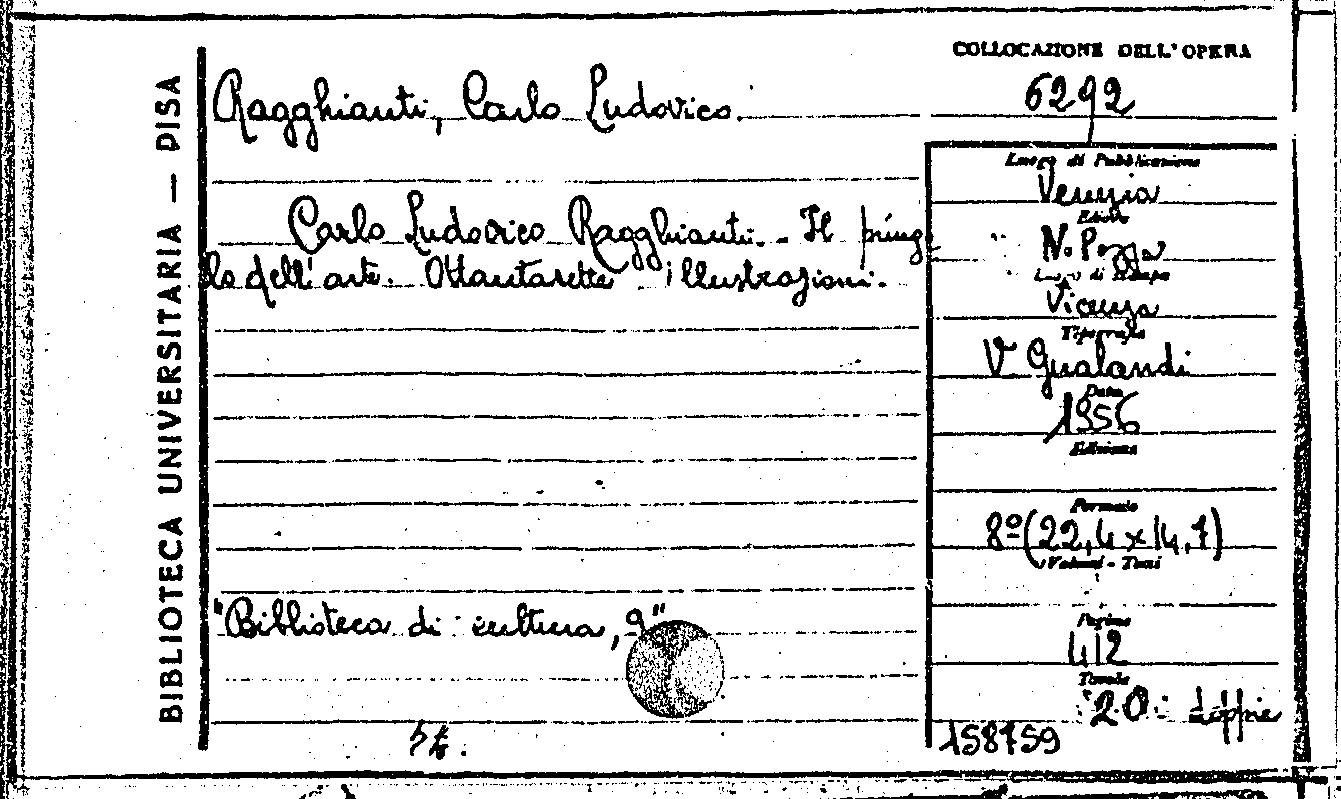 COLLOCAZIONE DELL'OPERA
6292
BIBLIOTECA UNIVERSITARIA — DISA
Ragghianti, Carlo Ludovico.
Carlo Ludovico Ragghianti. - Il
dell'arte. Ottantasette illustrazioni.
"Biblioteca di cultura, 9"
Luogo di Pubblicazione
Venezia
Editore
N. Pozza
Luogo di Stampa
Vicenza
Tipografo
V Gualandi
Data
1956
Edizione
Formato
8º (22,4 x 14,7)
Volumi - Tomi
Pagine
412
Tavole
20 doppie
158759